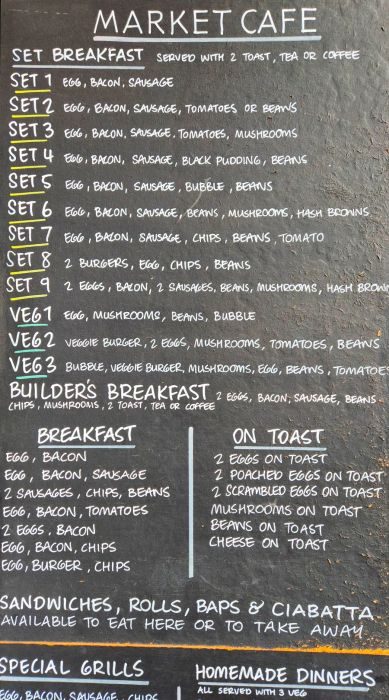 MARKET CAFE
SET BREAKFAST SERVED WITH 2 TOAST, TEA OR COFFEE
SET 1 EGG, BACON, SAUSAGE
SET 2 EGG, BACON, SAUSAGE, TOMATOES OR BEANS
SET 3 EGG, BACON, SAUSAGE. TOMATOES, MUSHROOMS
SET 4 EGG, BACON, SAUSAGE, BLACK PUDDING, BEANS
SET 5 EGG, BACON, SAUSAGE, BUBBLE, BEANS
SET 6 EGG, BACON, SAUSAGE, BEANS, MUSHROOMS, HASH BROWNS
SET 7 EGG, BACON, SAUSAGE, CHIPS, BEANS, TOMATO
SET 8 2 BURGERS, EGG, CHIPS, BEANS
SET 9 2 EGGS, BACON, 2 SAUSAGES, BEANS, MUSHROOMS, HASH BROWN
VEG 1 EGG, MUSHROOMS, BEANS, BUBBLE
VEG 2 VEGGIE BURGER, 2 EGGS, MUSHROOMS, TOMATOES, BEANS
VEG 3 BUBBLE, VEGGIE BURGER, MUSHROOMS, EGG, BEANS, TOMATOES
BUILDER'S BREAKFAST 2 EGGS, BACON, SAUSAGE, BEANS
CHIPS, MUSHROOMS, 2 TOAST, TEA OR COFFEE
BREAKFAST
EGG, BACON
EGG, BACON, SAUSAGE
2 SAUSAGES, CHIPS, BEANS
EGG, BACON, TOMATOES
2 EGGS, BACON
EGG, BACON, CHIPS
EGG, BURGER, CHIPS
ON TOAST
2 EGGS ON TOAST
2 POACHED EGGS ON TOAST
2 SCRAMBLED EGGS ON TOAST
MUSHROOMS ON TOAST
BEANS ON TOAST
CHEESE ON TOAST
SANDWICHES, ROLLS, BAPS & CIABATTA
AVAILABLE TO EAT HERE OR TO TAKE AWAY
SPECIAL GRILLS
EGG, BACON, SAUSAGE, CHIPS
HOMEMADE DINNERS
ALL SERVED WITH 3 VEG